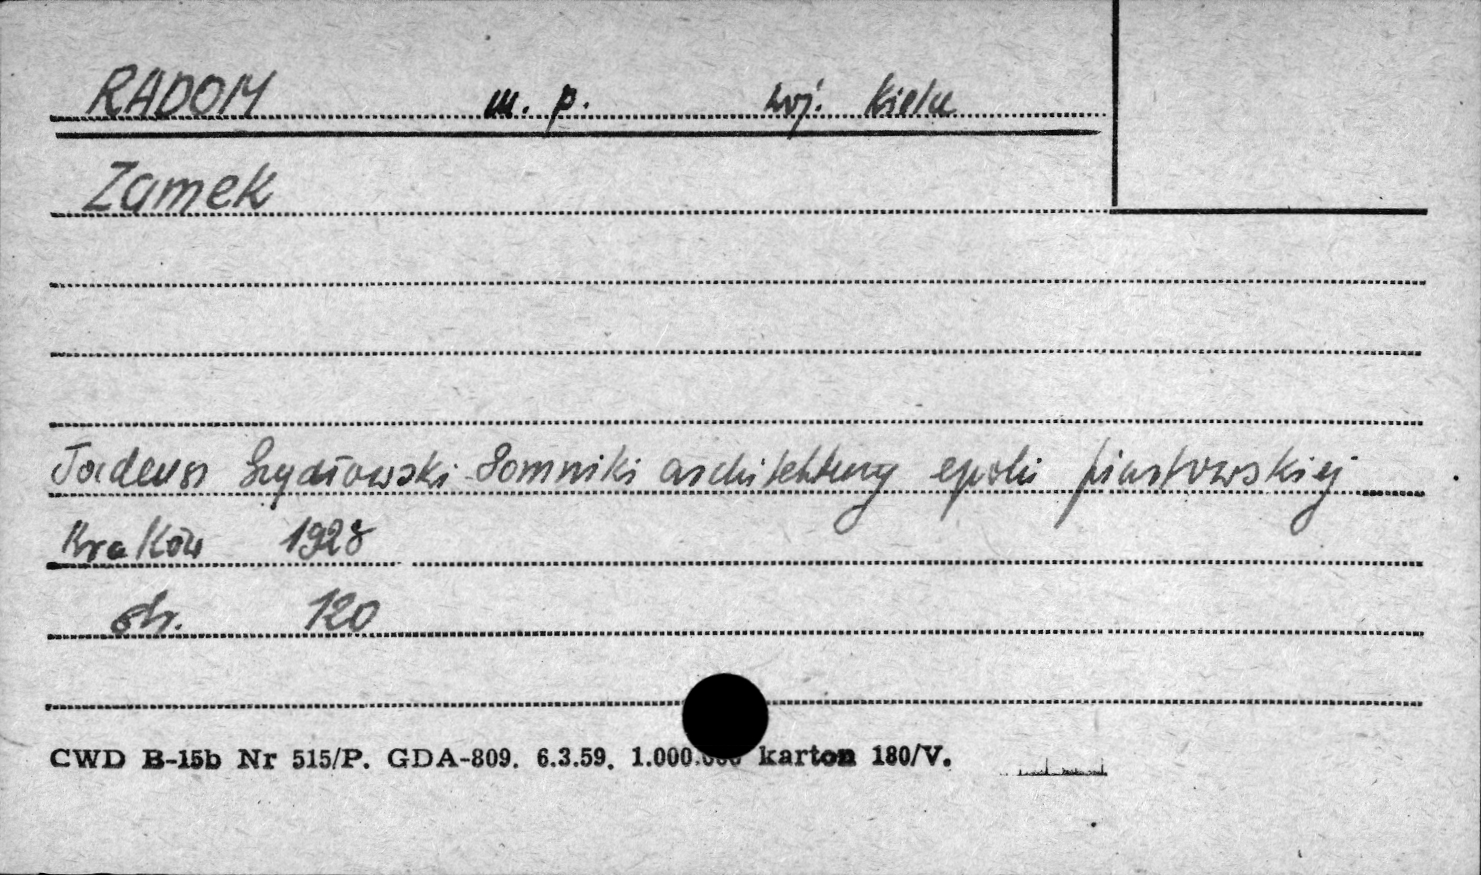 RADOM m. p. woj. Kielce
Zamek
Tadeusz Szydłowski Pomniki architektury epoki piastowskiej
Kraków 1928
str. 120
CWD B-15b Nr 515/P. GDA-809. 6.3.59. 1.000.000 karton 180/V.